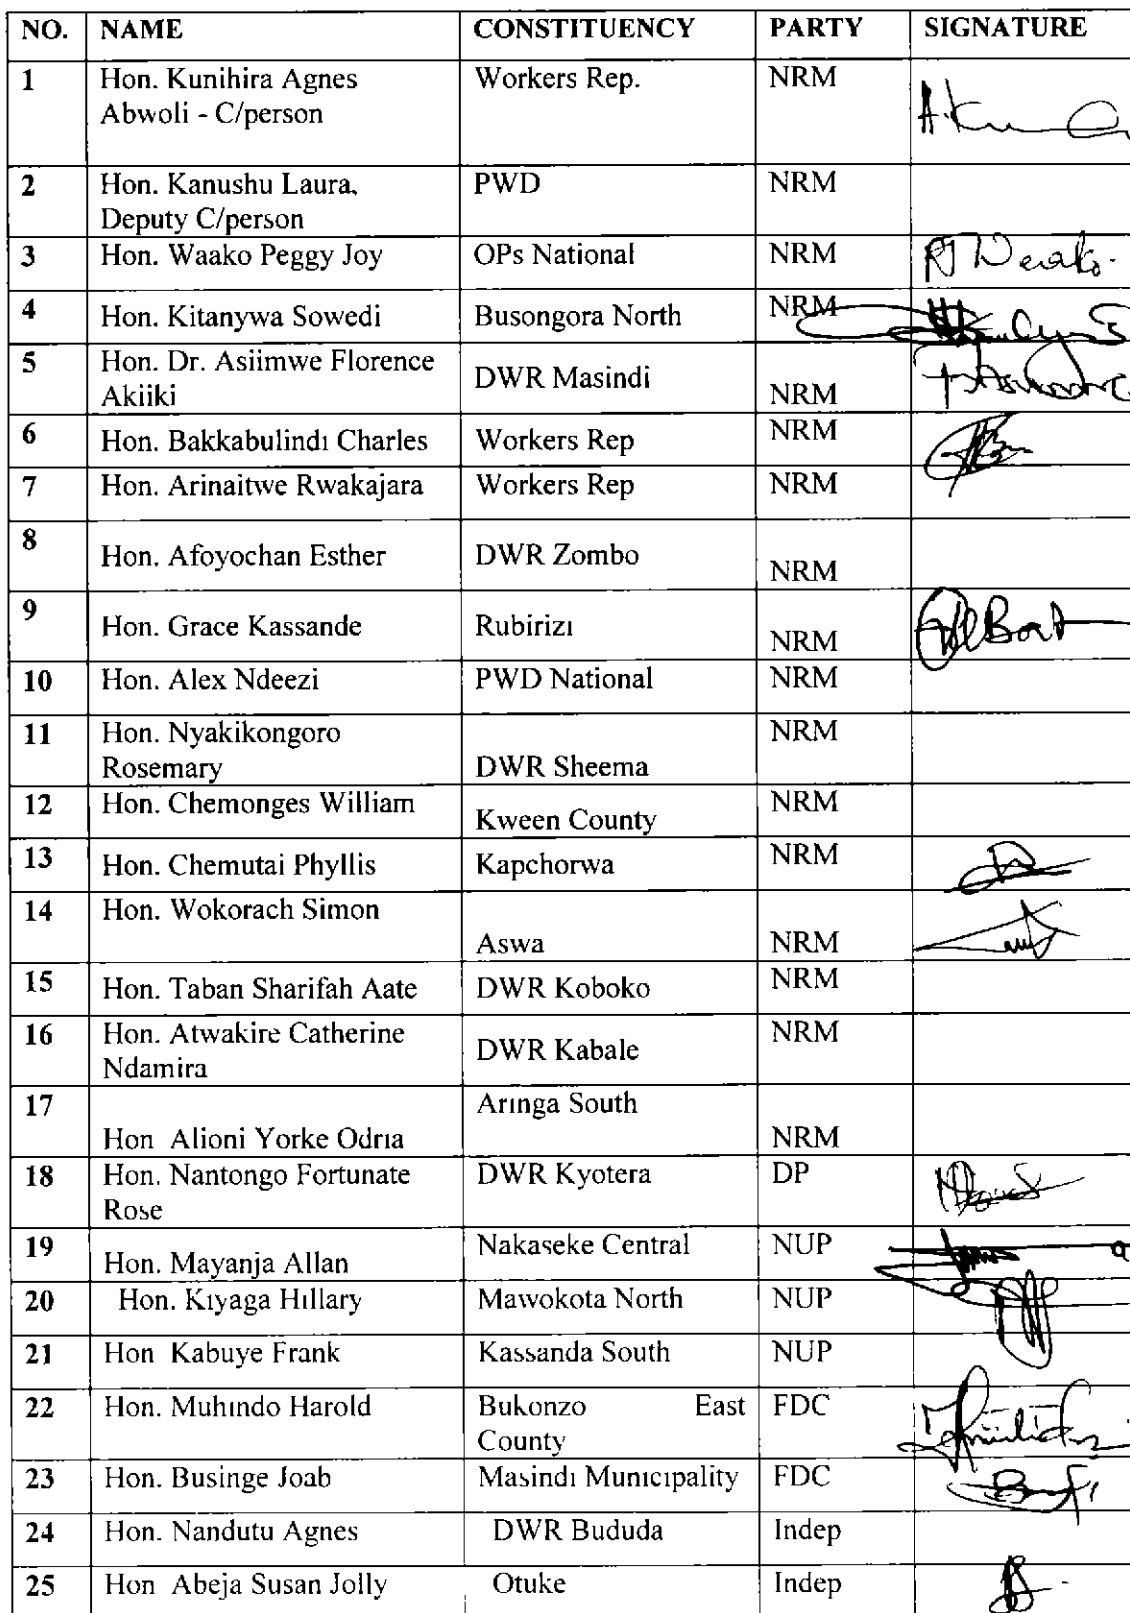 NO. NAME CONSTITUENCY PARTY SIGNATURE
1 Hon. Kunihira Agnes Workers Rep. NRM
Abwoli - C/person
2 Hon. Kanushu Laura, PWD NRM
Deputy C/person
3 Hon. Waako Peggy Joy OPs National NRM
4 Hon. Kitanywa Sowedi Busongora North NRM
5 Hon. Dr. Asiimwe Florence DWR Masindi NRM
Akiiki
6 Hon. Bakkabulindi Charles Workers Rep NRM
7 Hon. Arinaitwe Rwakajara Workers Rep NRM
8 Hon. Afoyochan Esther DWR Zombo NRM
9 Hon. Grace Kassande Rubirizi NRM
10 Hon. Alex Ndeezi PWD National NRM
11 Hon. Nyakikongoro DWR Sheema NRM
Rosemary
12 Hon. Chemonges William Kween County NRM
13 Hon. Chemutai Phyllis Kapchorwa NRM
14 Hon. Wokorach Simon Aswa NRM
15 Hon. Taban Sharifah Aate DWR Koboko NRM
16 Hon. Atwakire Catherine DWR Kabale NRM
Ndamira
17 Hon Alioni Yorke Odria Aringa South NRM
18 Hon. Nantongo Fortunate DWR Kyotera DP
Rose
19 Hon. Mayanja Allan Nakaseke Central NUP
20 Hon. Kiyaga Hillary Mawokota North NUP
21 Hon Kabuye Frank Kassanda South NUP
22 Hon. Muhindo Harold Bukonzo East FDC
County
23 Hon. Businge Joab Masindi Municipality FDC
24 Hon. Nandutu Agnes DWR Bududa Indep
25 Hon Abeja Susan Jolly Otuke Indep